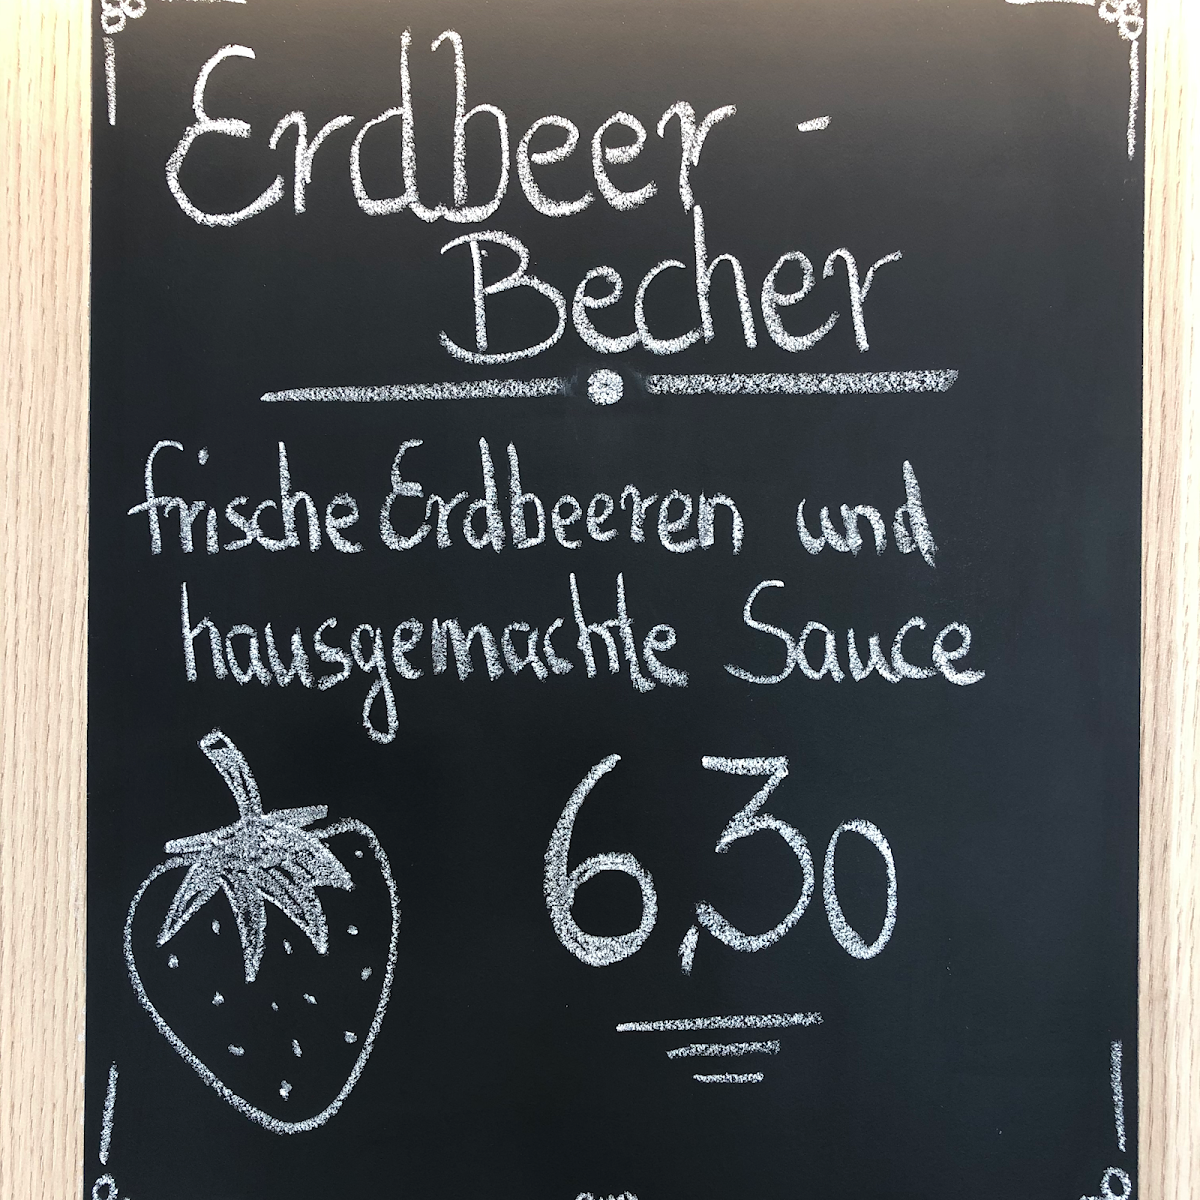 Erdbeer-
Becher
frische Erdbeeren und
hausgemachte Sauce
6,30